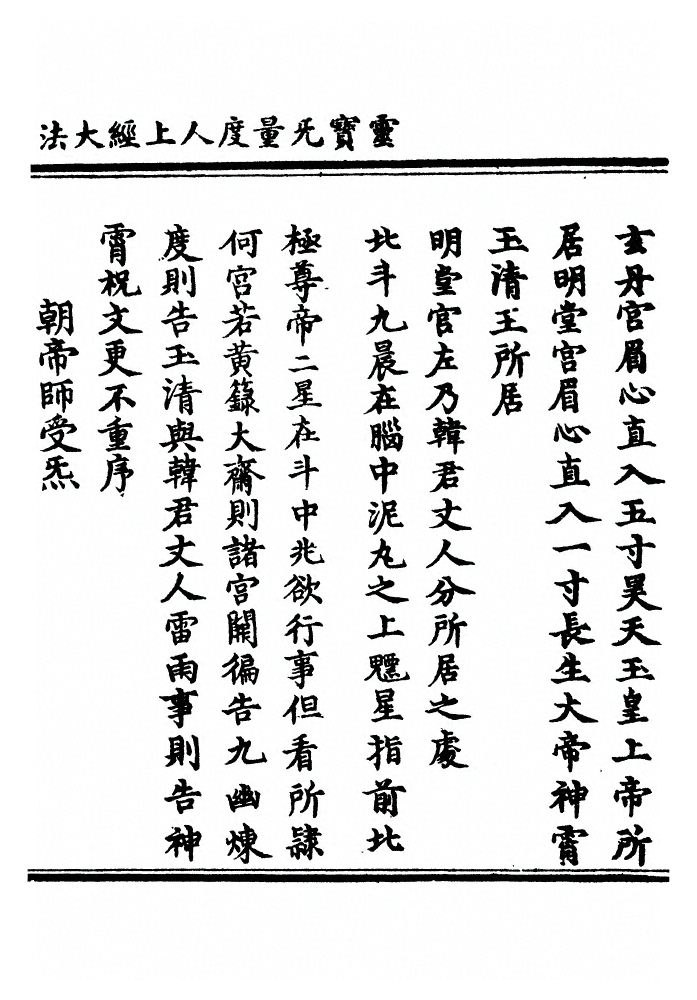 靈寶旡量度人上經大法
玄丹宫眉心直入五寸昊天玉皇上帝所
居明堂宫眉心直入一寸長生大帝神霄
玉清王所居
明堂官左乃韓君丈人分所居之處
北斗九晨在腦中泥丸之上魒星指前北
極尊帝二星在斗中兆欲行事但看所隷
何宫若黄籙大齋則諸宫開徧告九幽煉
度則告玉清與韓君丈人雷雨事則告神
霄祝文更不重序
朝帝師受炁